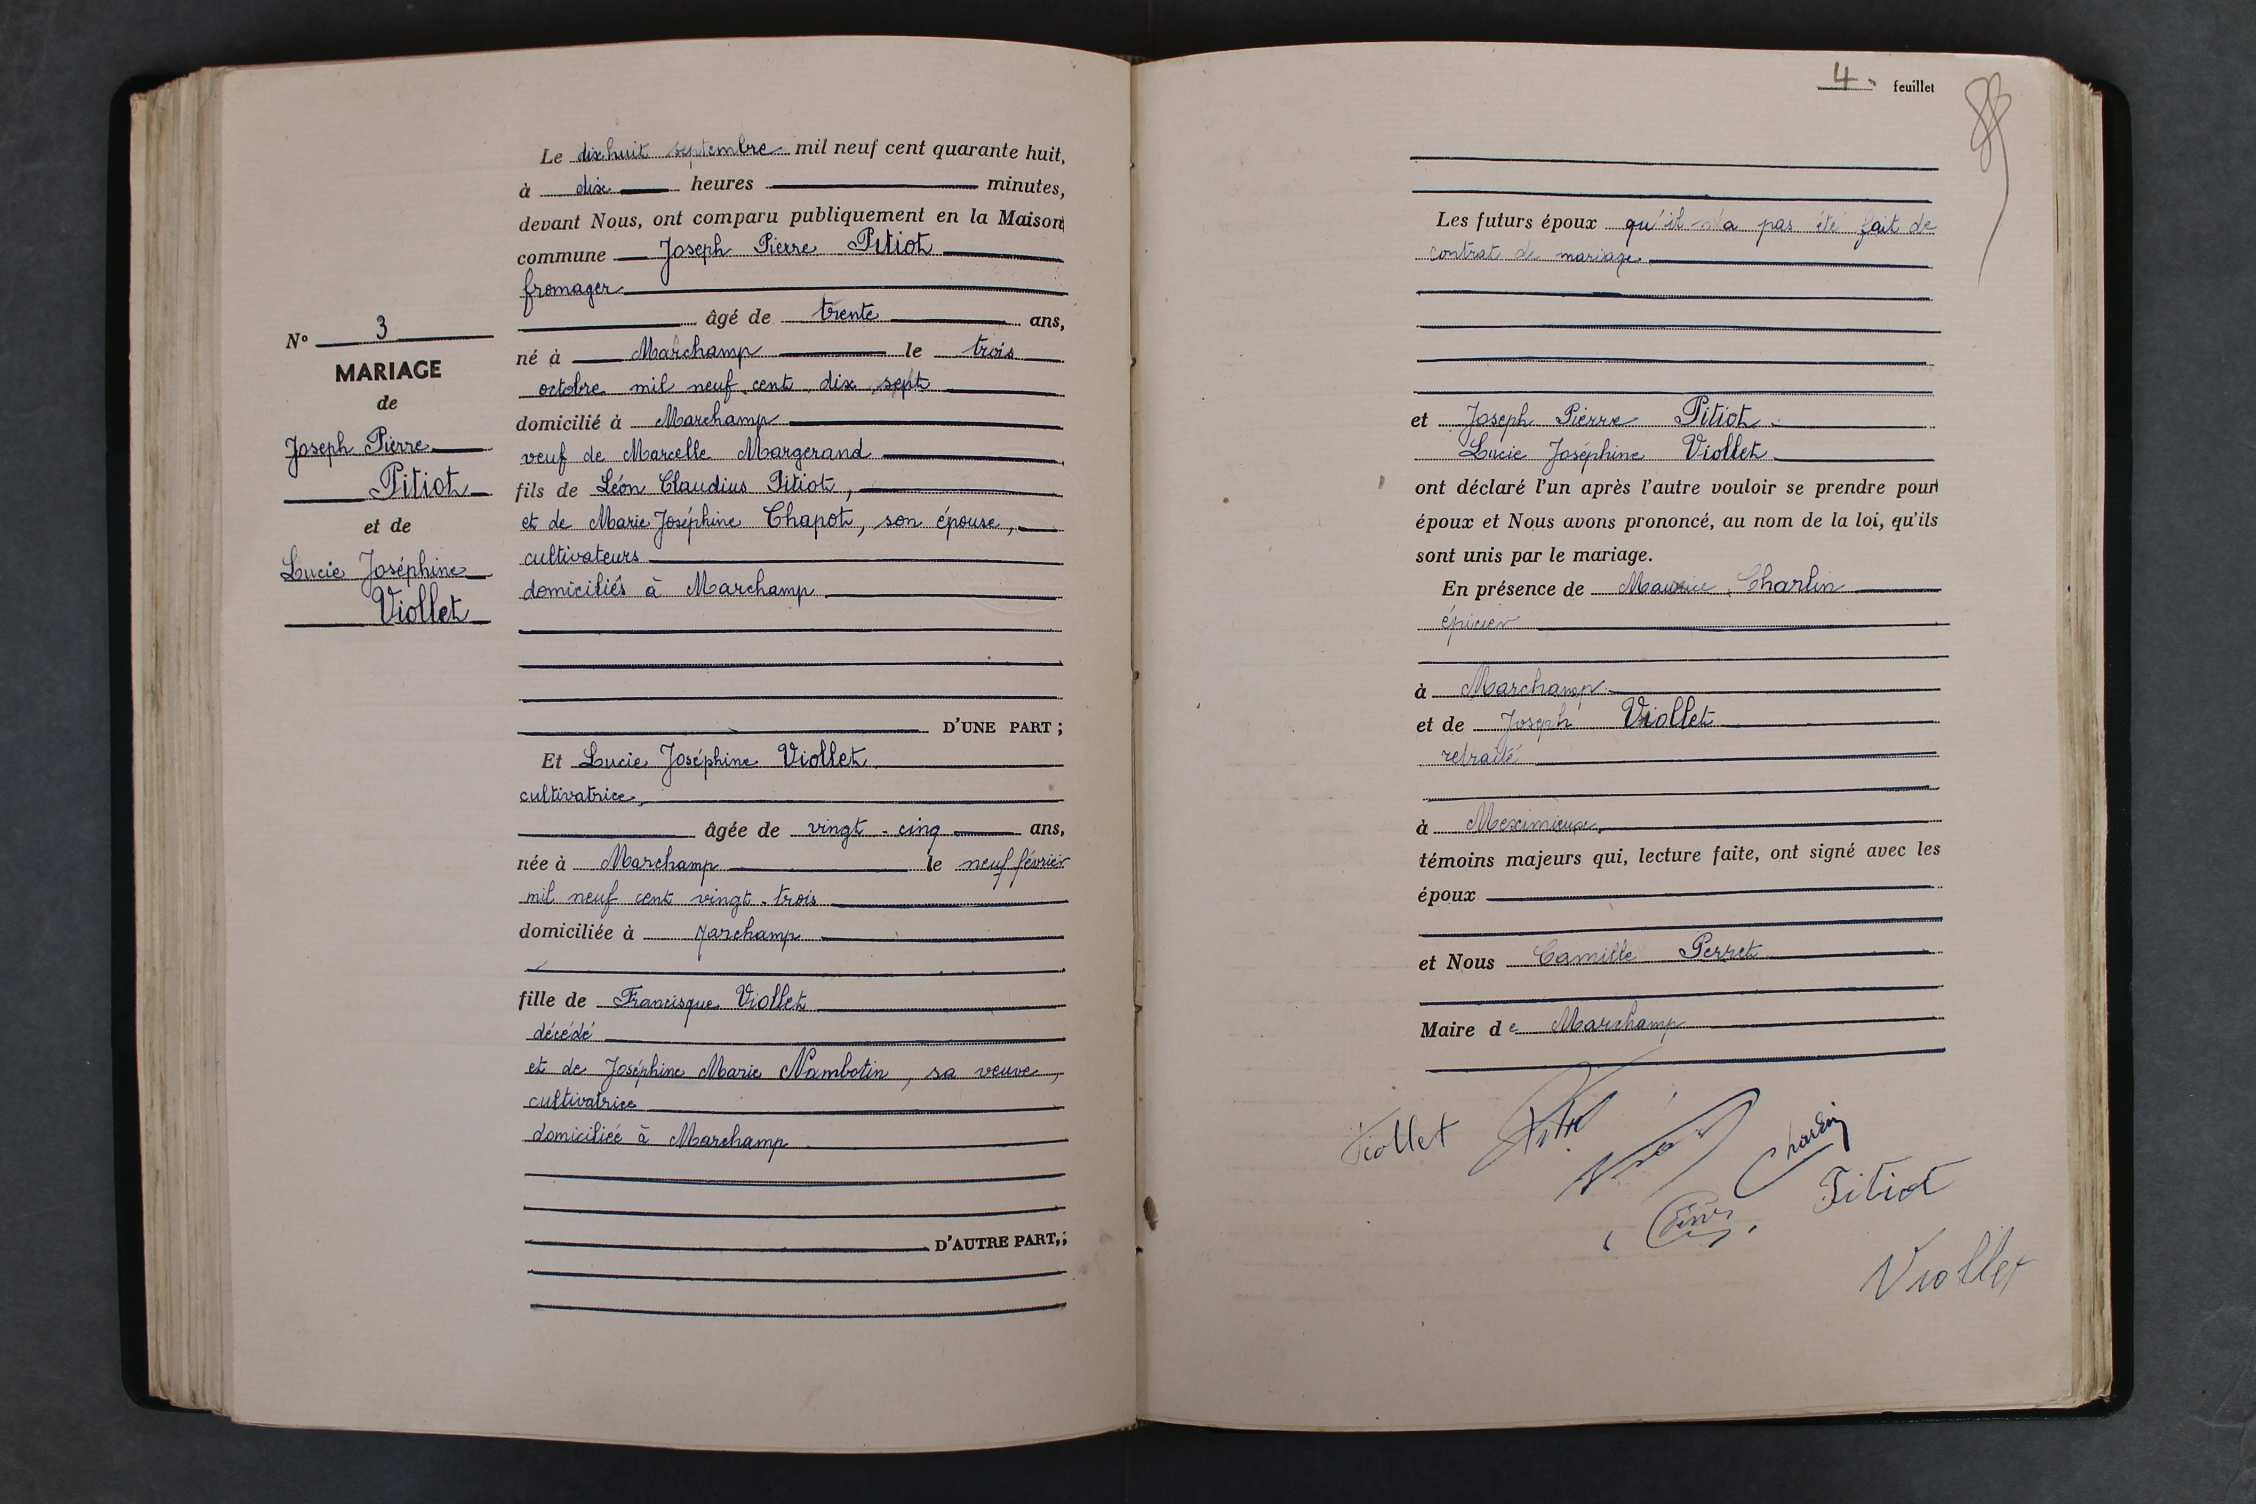 Le dix huit septembre mil neuf cent quarante huit,
à dix heures minutes,
devant Nous, ont comparu publiquement en la Maison
commune Joseph Pierre Pitiot
fromager
âgé de trente ans,
né à Marchamp le trois
octobre mil neuf cent dix sept
domicilié à Marchamp
veuf de Marcelle Margerand
fils de Léon Claudius Pitiot,
et de Marie Joséphine Chapot, son épouse,
cultivateurs
domiciliés à Marchamp
D'UNE PART ;
Et Lucie Joséphine Viollet
cultivatrice,
âgée de vingt-cinq ans,
née à Marchamp le neuf février
mil neuf cent vingt-trois
domiciliée à Marchamp
fille de Francisque Viollet
décédé
et de Joséphine Marie Nambotin, sa veuve,
cultivatrice
domiciliée à Marchamp
D'AUTRE PART,;
N° 3
MARIAGE
de
Joseph Pierre
Pitiot
et de
Lucie Joséphine
Viollet
4. feuillet
Les futurs époux qu'il n'a pas été fait de
contrat de mariage.
et Joseph Pierre Pitiot
Lucie Joséphine Viollet
ont déclaré l'un après l'autre vouloir se prendre pour
époux et Nous avons prononcé, au nom de la loi, qu'ils
sont unis par le mariage.
En présence de Maurice Charlin
épicier
à Marchamp
et de Joseph Viollet
retraité
à Meximieux,
témoins majeurs qui, lecture faite, ont signé avec les
époux
et Nous Camille Perret
Maire de Marchamp
Viollet
Charlin
Pitiot
Viollet